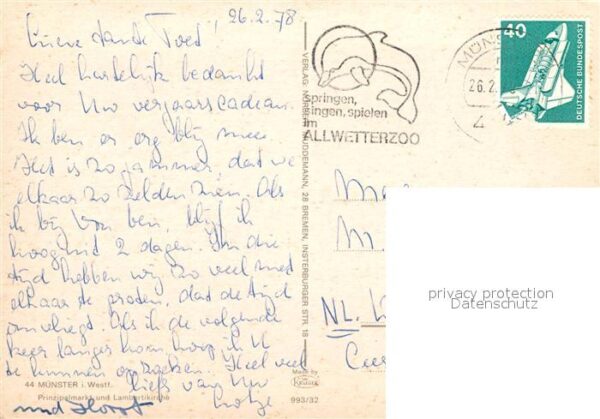 26.2.78
Lieve tante
Heel hartelijk bedankt
voor Uw verjaarscadeau.
Ik ben er erg blij mee.
Het is zo jammer, dat we
elkaar zo zelden zien. Als
ik bij ben, blijf ik
hooguit 2 dagen. In die
tijd hebben wij zo veel met
elkaar te praten, dat de tijd
omvliegt. Als ik de volgende
keer langer kom, hoop ik U
te kunnen opzoeken. Heel veel
liefs van Uw
und Horst
44 MÜNSTER i. Westf.
Prinzipalmarkt und Lambertikirche
VERLAG NORBERT HUDDEMANN, 28 BREMEN, INSTERBURGER STR. 18
Made by
Krüger
993/32
springen,
singen, spielen
im
ALLWETTERZOO
MÜNS
26.2.
40
DEUTSCHE BUNDESPOST
M
NL.
privacy protection
Datenschutz